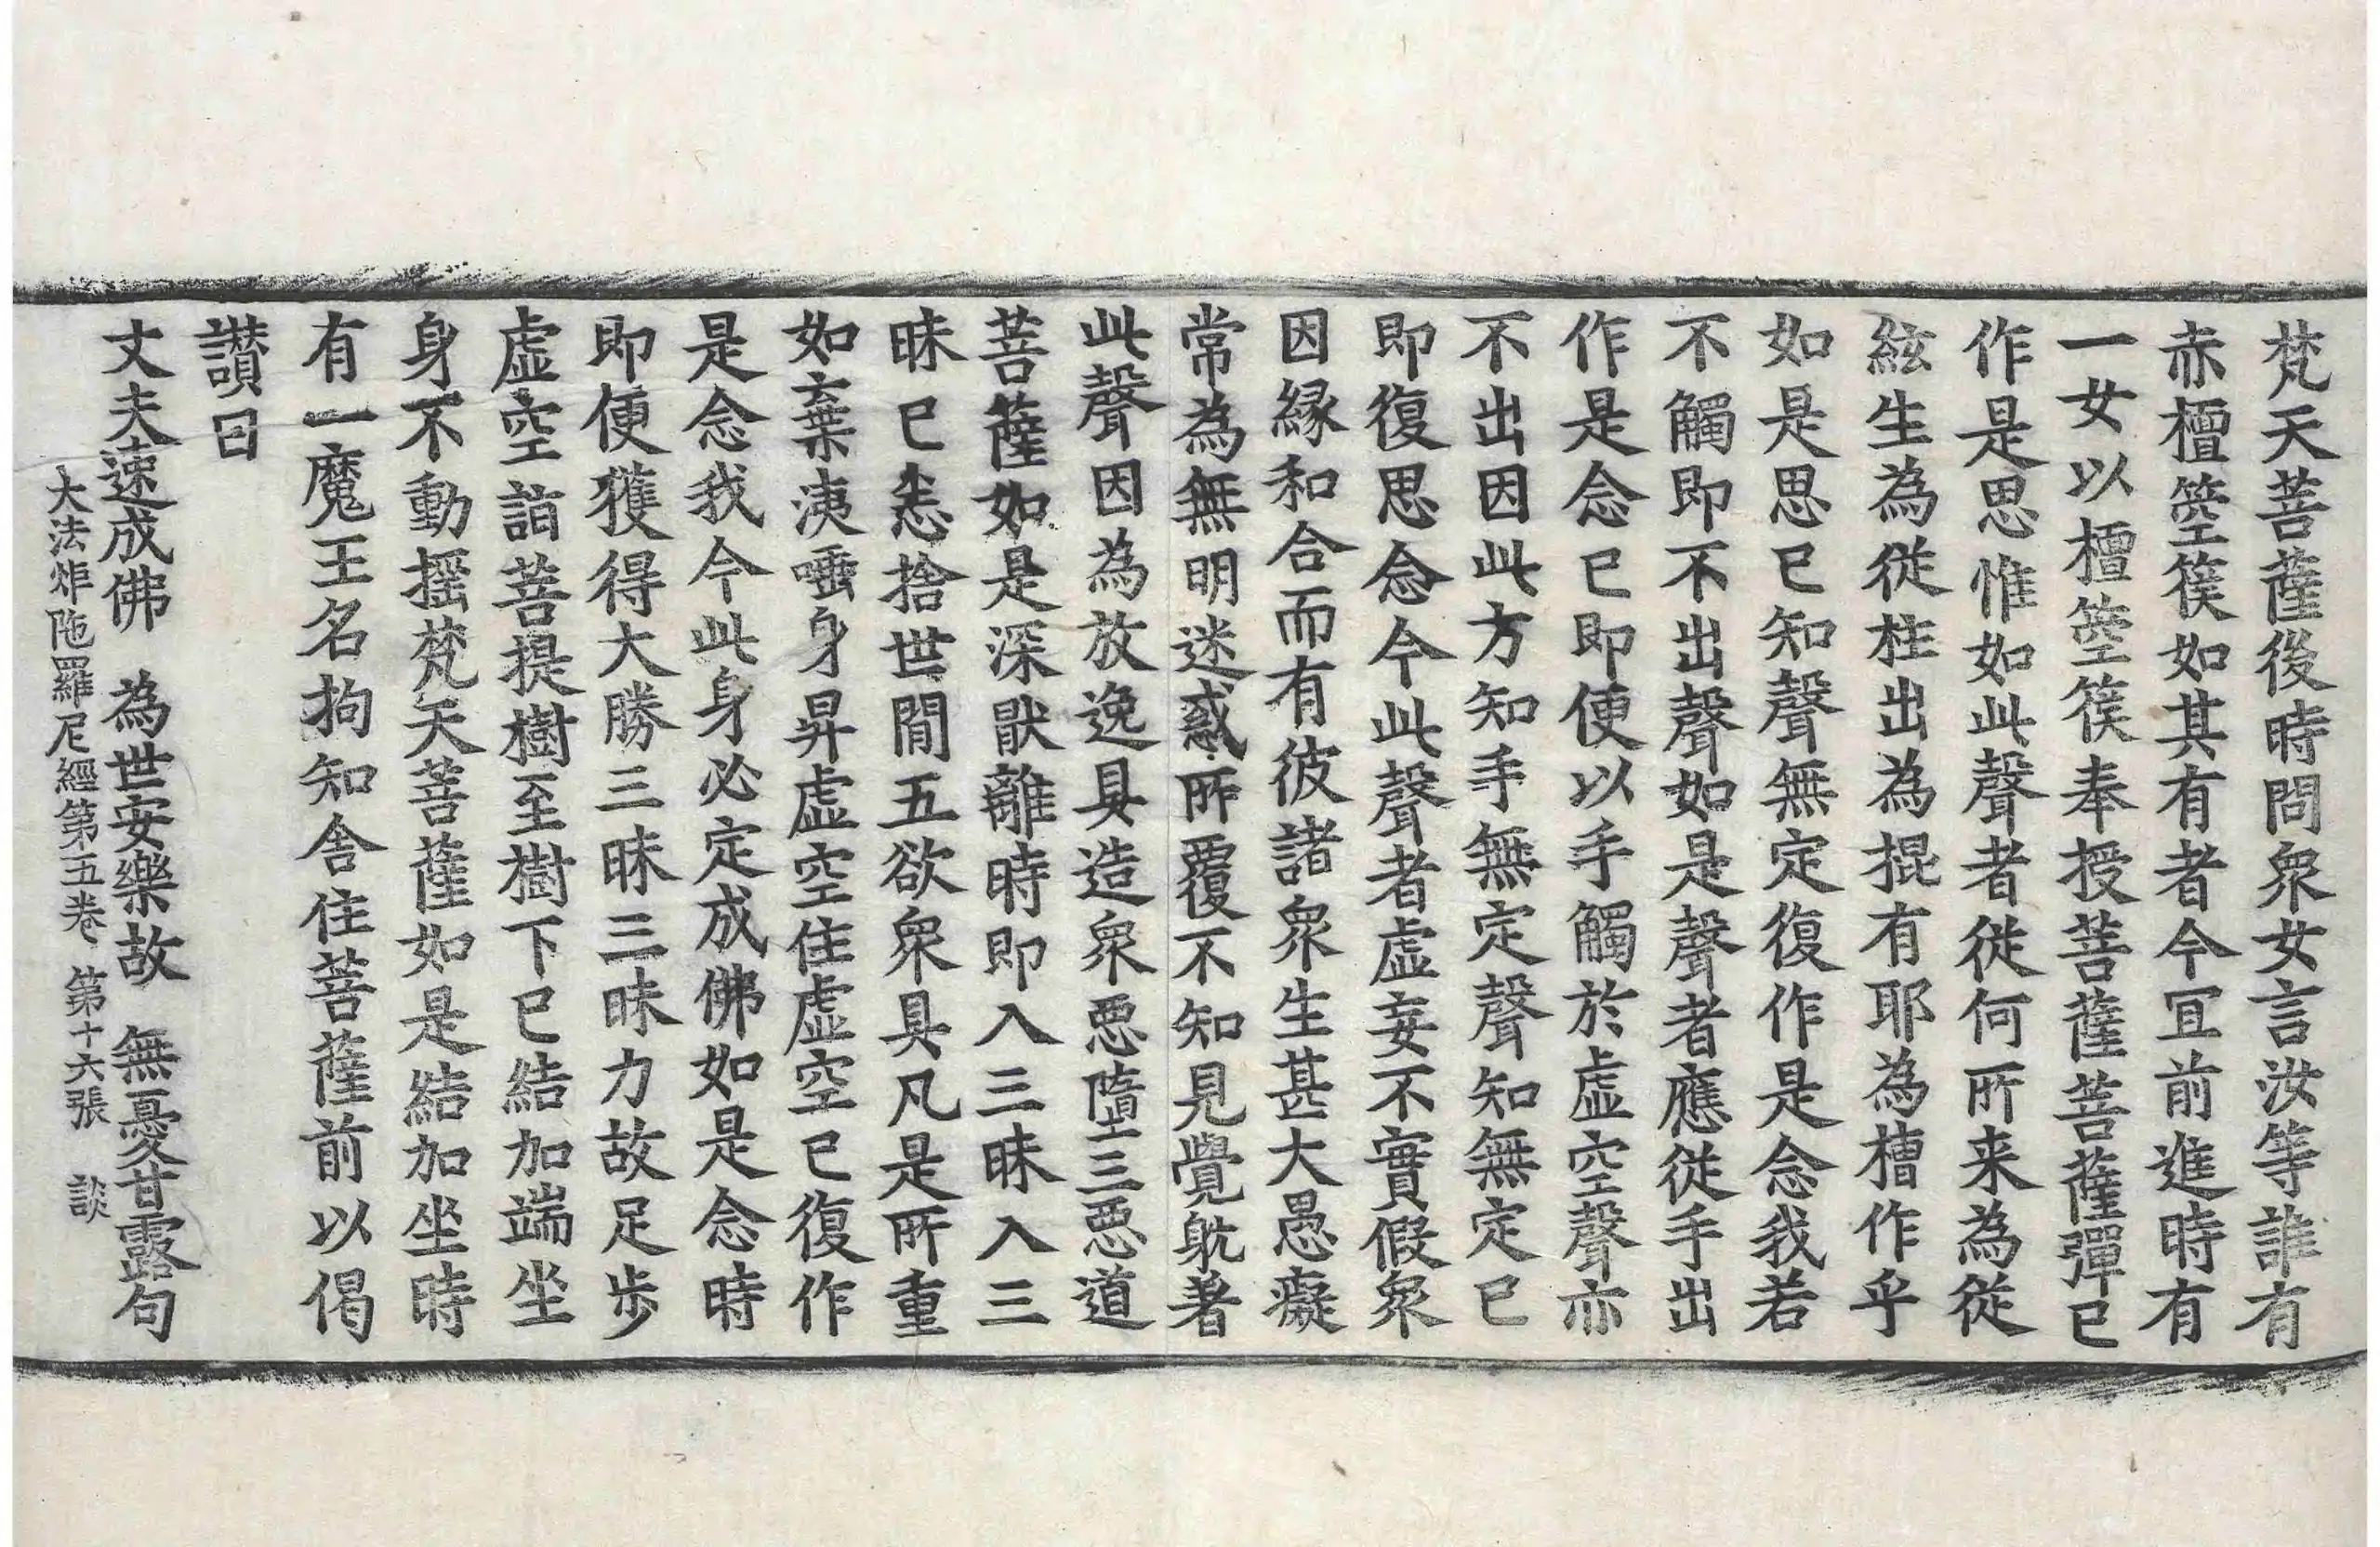 梵天菩薩後時問衆女言汝等誰有
赤檀箜篌如其有者今冝前進時有
一女以檀箜篌奉授菩薩菩薩彈已
作是思惟如此聲者從何所来為從
絃生為從柱出為掍有耶為槽作乎
如是思已知聲無定復作是念我若
不觸即不出聲如是聲者應從手出
作是念已即便以手觸於虛空聲亦
不出因此方知手無定聲知無定已
即復思念今此聲者虛妄不實假衆
因緣和合而有彼諸衆生甚大愚癡
常為無明迷惑所覆不知見覺躭著
此聲因為放逸具造衆惡墮三惡道
菩薩如是深猒離時即入三昧入三
昧已悉捨世間五欲衆具凡是所重
如棄洟唾身昇虛空住虛空已復作
是念我今此身必定成佛如是念時
即便獲得大勝三昧三昧力故足步
虛空詣菩提樹至樹下已結加端坐
身不動搖梵天菩薩如是結加坐時
有一魔王名拘知舍住菩薩前以偈
讃曰
丈夫速成佛　為世安樂故　無憂甘露句
大法炬陁羅尼經第五卷　第十六張　談